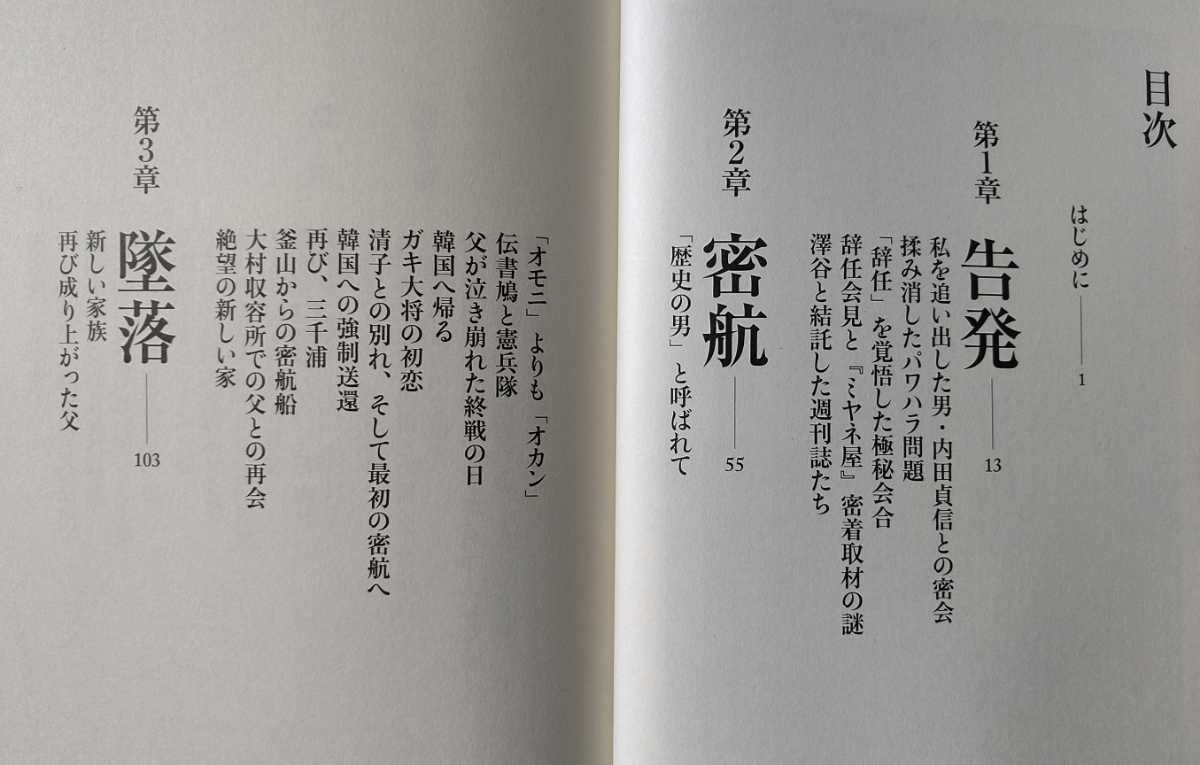 目次
はじめに――1
第1章 告発――13
私を追い出した男・内田貞信との密会
揉み消したパワハラ問題
「辞任」を覚悟した極秘会合
辞任会見と『ミヤネ屋』密着取材の謎
澤谷と結託した週刊誌たち
第2章 密航――55
「歴史の男」と呼ばれて
「オモニ」よりも「オカン」
伝書鳩と憲兵隊
父が泣き崩れた終戦の日
韓国へ帰る
ガキ大将の初恋
清子との別れ、そして最初の密航へ
韓国への強制送還
再び、三千浦
釜山からの密航船
大村収容所での父との再会
絶望の新しい家
第3章 墜落――103
新しい家族
再び成り上がった父